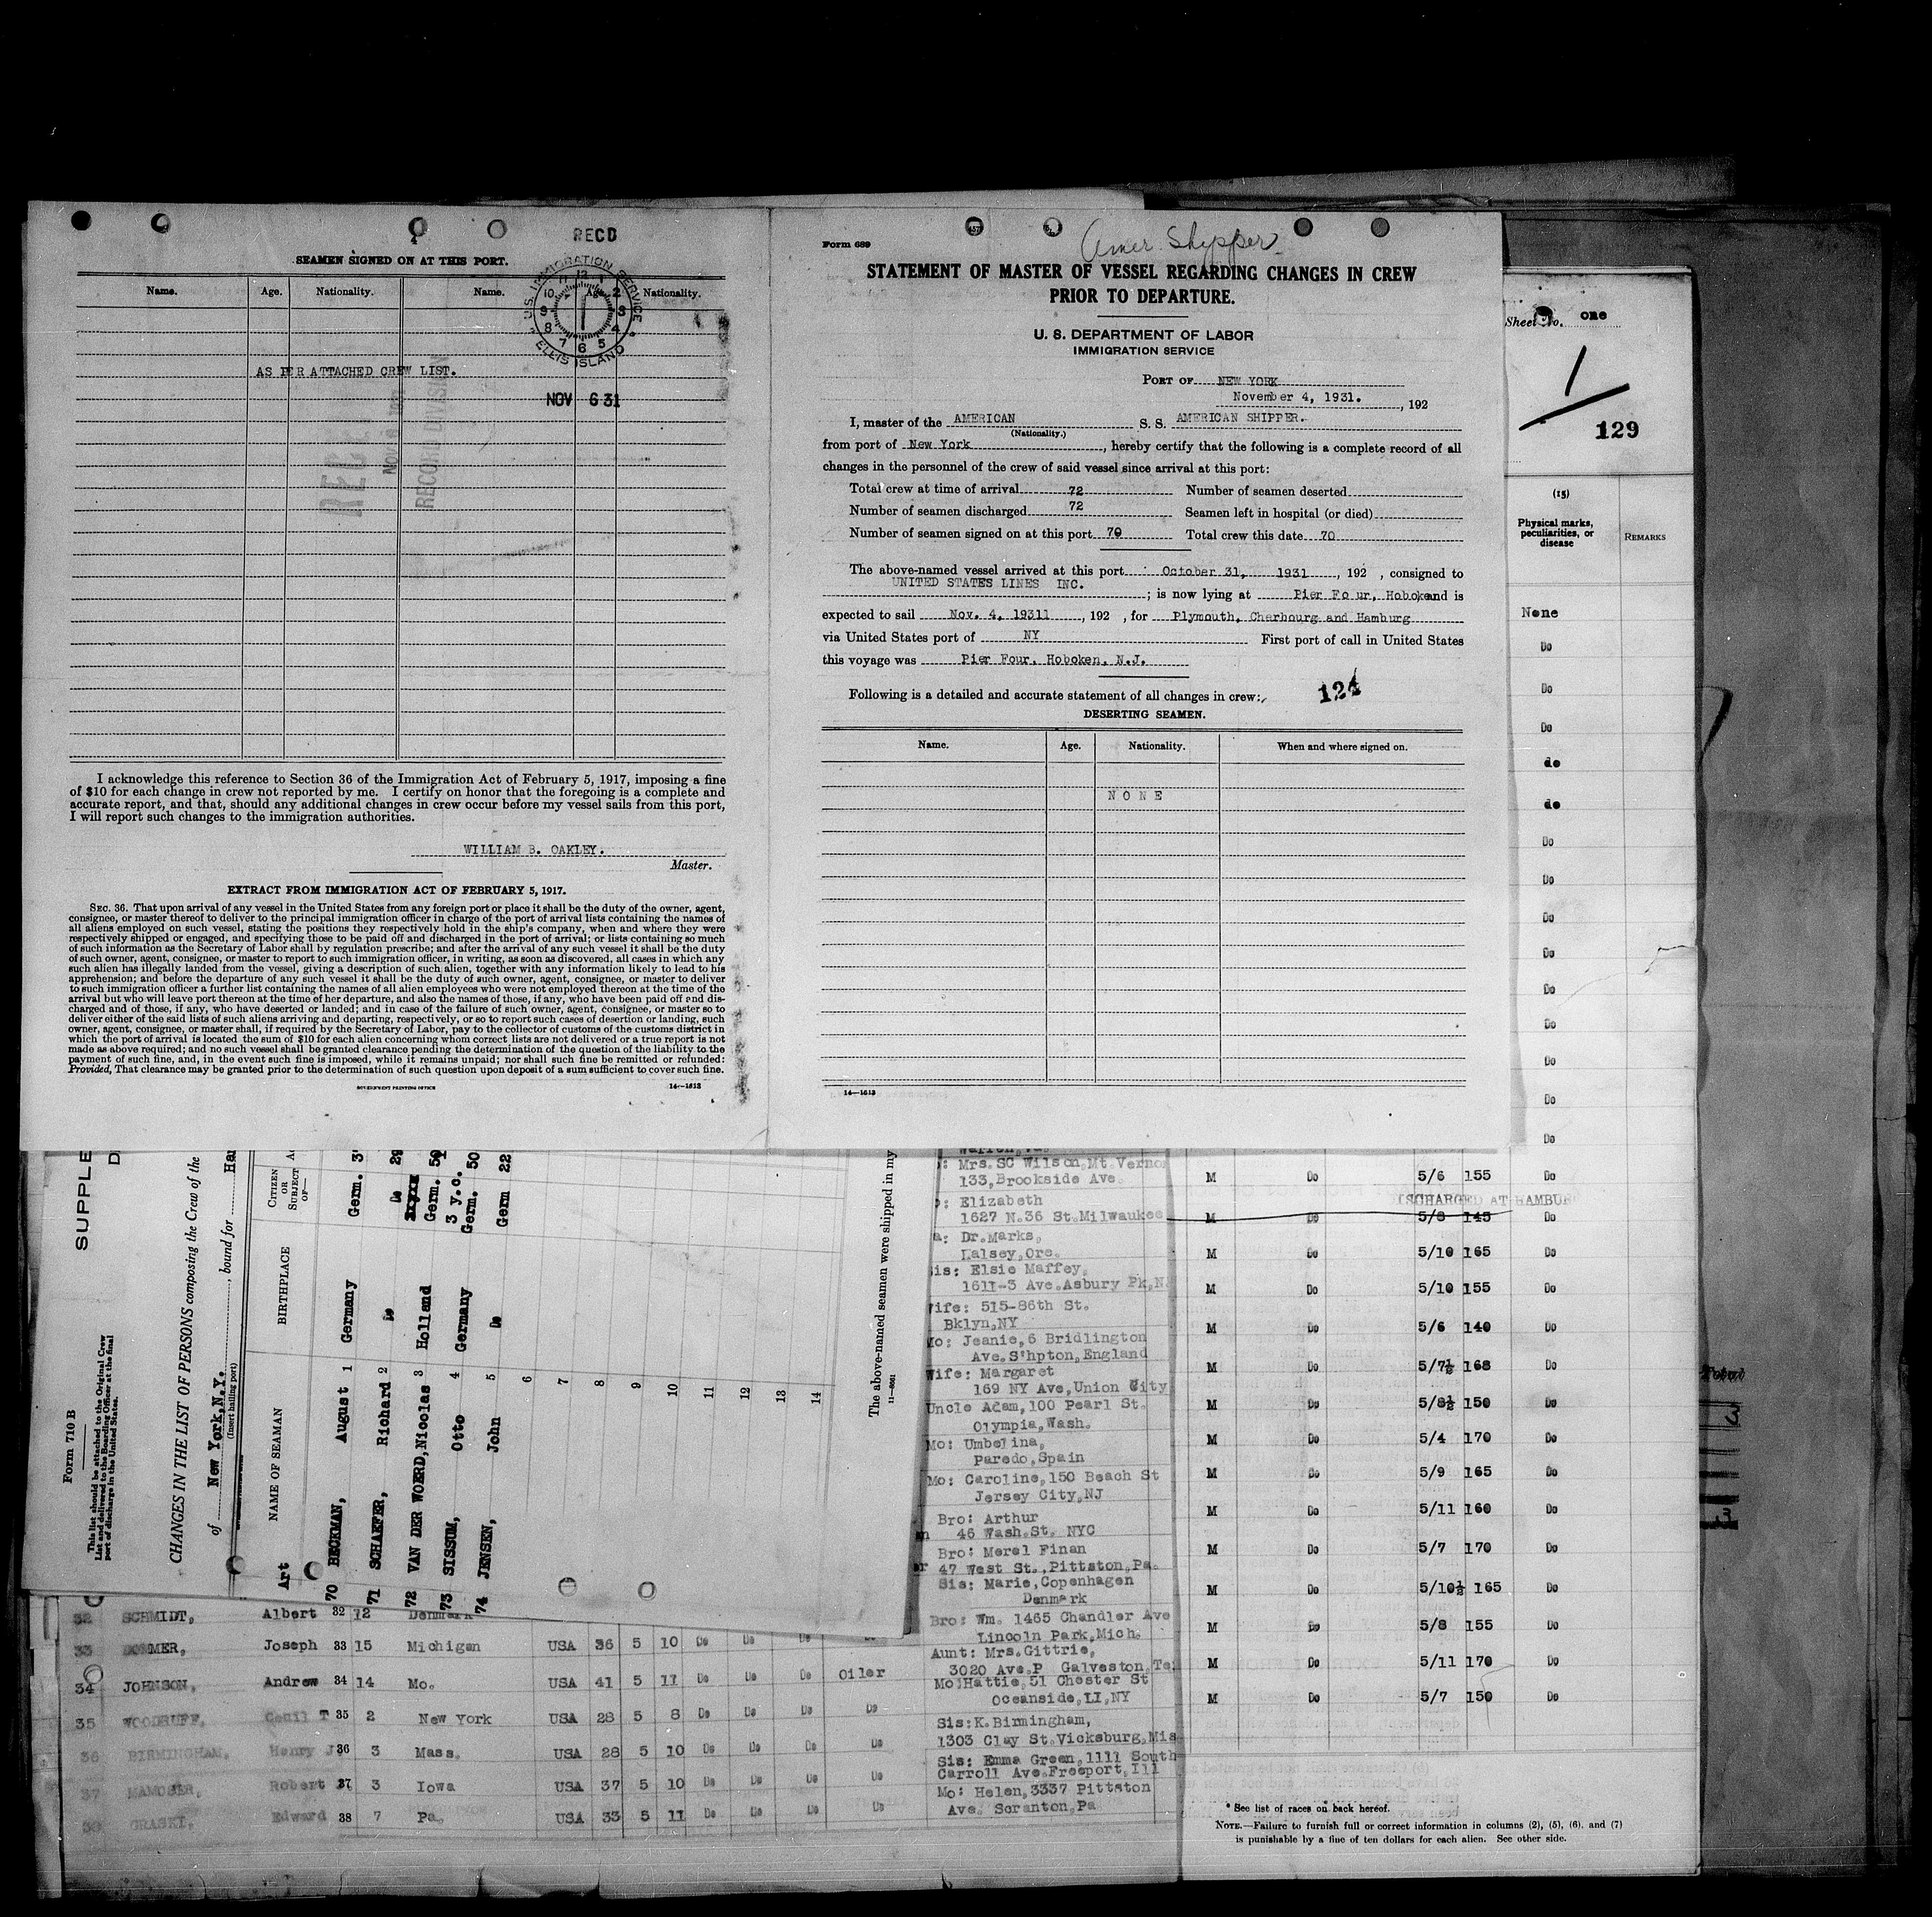 RECD
SEAMEN SIGNED ON AT THIS PORT.
Name. Age. Nationality. Name. Age. Nationality.
U.S. IMMIGRATION SERVICE
ELLIS ISLAND
AS PER ATTACHED CREW LIST.
NOV 6 31
RECORD DIVISION
I acknowledge this reference to Section 36 of the Immigration Act of February 5, 1917, imposing a fine
of $10 for each change in crew not reported by me. I certify on honor that the foregoing is a complete and
accurate report, and that, should any additional changes in crew occur before my vessel sails from this port,
I will report such changes to the immigration authorities.
WILLIAM B. OAKLEY.
Master.
EXTRACT FROM IMMIGRATION ACT OF FEBRUARY 5, 1917.
SEC. 36. That upon arrival of any vessel in the United States from any foreign port or place it shall be the duty of the owner, agent,
consignee, or master thereof to deliver to the principal immigration officer in charge of the port of arrival lists containing the names of
all aliens employed on such vessel, stating the positions they respectively hold in the ship's company, when and where they were
respectively shipped or engaged, and specifying those to be paid off and discharged in the port of arrival; or lists containing so much
of such information as the Secretary of Labor shall by regulation prescribe; and after the arrival of any such vessel it shall be the duty
of such owner, agent, consignee, or master to report to such immigration officer, in writing, as soon as discovered, all cases in which any
such alien has illegally landed from the vessel, giving a description of such alien, together with any information likely to lead to his
apprehension; and before the departure of any such vessel it shall be the duty of such owner, agent, consignee, or master to deliver
to such immigration officer a further list containing the names of all alien employees who were not employed thereon at the time of the
arrival but who will leave port thereon at the time of her departure, and also the names of those, if any, who have been paid off and dis-
charged and of those, if any, who have deserted or landed; and in case of the failure of such owner, agent, consignee, or master so to
deliver either of the said lists of such aliens arriving and departing, respectively, or so to report such cases of desertion or landing, such
owner, agent, consignee, or master shall, if required by the Secretary of Labor, pay to the collector of customs of the customs district in
which the port of arrival is located the sum of $10 for each alien concerning whom correct lists are not delivered or a true report is not
made as above required; and no such vessel shall be granted clearance pending the determination of the question of the liability to the
payment of such fine, and, in the event such fine is imposed, while it remains unpaid; nor shall such fine be remitted or refunded:
Provided, That clearance may be granted prior to the determination of such question upon deposit of a sum sufficient to cover such fine.
GOVERNMENT PRINTING OFFICE 14—1613
Form 689
Amer. Shipper
STATEMENT OF MASTER OF VESSEL REGARDING CHANGES IN CREW
PRIOR TO DEPARTURE.
U. S. DEPARTMENT OF LABOR
IMMIGRATION SERVICE
PORT OF NEW YORK
November 4, 1931. , 192
I, master of the AMERICAN S. S. AMERICAN SHIPPER.
(Nationality.)
from port of New York, hereby certify that the following is a complete record of all
changes in the personnel of the crew of said vessel since arrival at this port:
Total crew at time of arrival 72 Number of seamen deserted
Number of seamen discharged 72 Seamen left in hospital (or died)
Number of seamen signed on at this port 70 Total crew this date 70
The above-named vessel arrived at this port October 31, 1931, 192 , consigned to
UNITED STATES LINES INC.
; is now lying at Pier Fo ur, Hoboken and is
expected to sail Nov. 4, 19311, 192 , for Plymouth, Cherbourg and Hamburg
via United States port of NY First port of call in United States
this voyage was Pier Four, Hoboken, N.J.
Following is a detailed and accurate statement of all changes in crew:
124
DESERTING SEAMEN.
Name. Age. Nationality. When and where signed on.
N O N E
14—1613
Sheet No. one
1
129
(15)
Physical marks, peculiarities, or disease
REMARKS
None
Do
Do
Do
do
do
Do
Do
Do
Do
Do
Do
Do
Do
Do
Form 710 B
This list should be attached to the Original Crew
List and delivered to the Boarding Officer at the final
port of discharge in the United States.
SUPPLE
CHANGES IN THE LIST OF PERSONS composing the Crew of the
of New York, N.Y. , bound for Ha
(Insert hailing port)
Art NAME OF SEAMAN BIRTHPLACE CITIZEN OR SUBJECT OF—
70 BECKMAN, August 1 Germany Germ. 3
71 SCHAEFER, Richard 2 Do Do 29
72 VAN DER WOERD, Nicolas 3 Holland Germ. 50
3 y.c.
73 SISSUM, Otto 4 Germany Germ. 50
74 JENSEN, John 5 Do Germ 22
6
7
8
9
10
11
12
13
14
The above-named seamen were shipped in my
11—8661
32 SCHMIDT, Albert 32 12 Denmark
33 BOMMER, Joseph 33 15 Michigan USA 36 5 10 Do Do Do Do
34 JOHNSON, Andrew 34 14 Mo. USA 41 5 11 Do Do Do Oiler
35 WOODRUFF, Cecil T 35 2 New York USA 28 5 8 Do Do Do Do
36 BIRMINGHAM, Henry J 36 3 Mass. USA 28 5 10 Do Do Do Do
37 MAMOSER, Robert 37 3 Iowa USA 37 5 10 Do Do Do Do
38 GRASKI, Edward 38 7 Pa. USA 33 5 11 Do Do Do Do
Mrs. SC Wilson, Mt. Verno
133, Brookside Ave.
Elizabeth
1627 N.36 St. Milwaukee
Dr. Marks,
Halsey, Ore.
is: Elsie Maffey,
1611-3 Ave. Asbury Pk, N
ife: 515-86th St.
Bklyn, NY
Mo: Jeanie, 6 Bridlington
Ave. S'hpton, England
Wife: Margaret
169 NY Ave, Union City
Uncle Adam, 100 Pearl St.
Olympia, Wash.
Mo: Umbelina,
Paredo, Spain
Mo: Caroline, 150 Beach St
Jersey City, NJ
Bro: Arthur
46 Wash. St. NYC
Bro: Merel Finan
47 West St., Pittston, Pa.
Sis: Marie, Copenhagen
Denmark
Bro: Wm. 1465 Chandler Ave
Lincoln Park, Mich.
Aunt: Mrs. Gittrie,
3020 Ave. P Galveston, Te
Mo: Hattie, 51 Chester St
Oceanside, LI, NY
Sis: K. Birmingham,
1303 Clay St. Vicksburg, Mis
Sis: Emma Green, 1111 South
Carroll Ave. Freeport, Ill
Mo: Helen, 3337 Pittston
Ave. Scranton, Pa
M Do 5/6 155 Do
DISCHARGED AT HAMBUR
M Do 5/8 145 Do
M Do 5/10 165 Do
M Do 5/10 155 Do
M Do 5/6 140 Do
M Do 5/7½ 168 Do
M Do 5/8½ 150 Do
M Do 5/4 170 Do
M Do 5/9 165 Do
M Do 5/11 160 Do
M Do 5/7 170 Do
M Do 5/10½ 165 Do
M Do 5/8 155 Do
M Do 5/11 170 Do
M Do 5/7 150 Do
* See list of races on back hereof.
NOTE.—Failure to furnish full or correct information in columns (2), (5), (6), and (7)
is punishable by a fine of ten dollars for each alien. See other side.